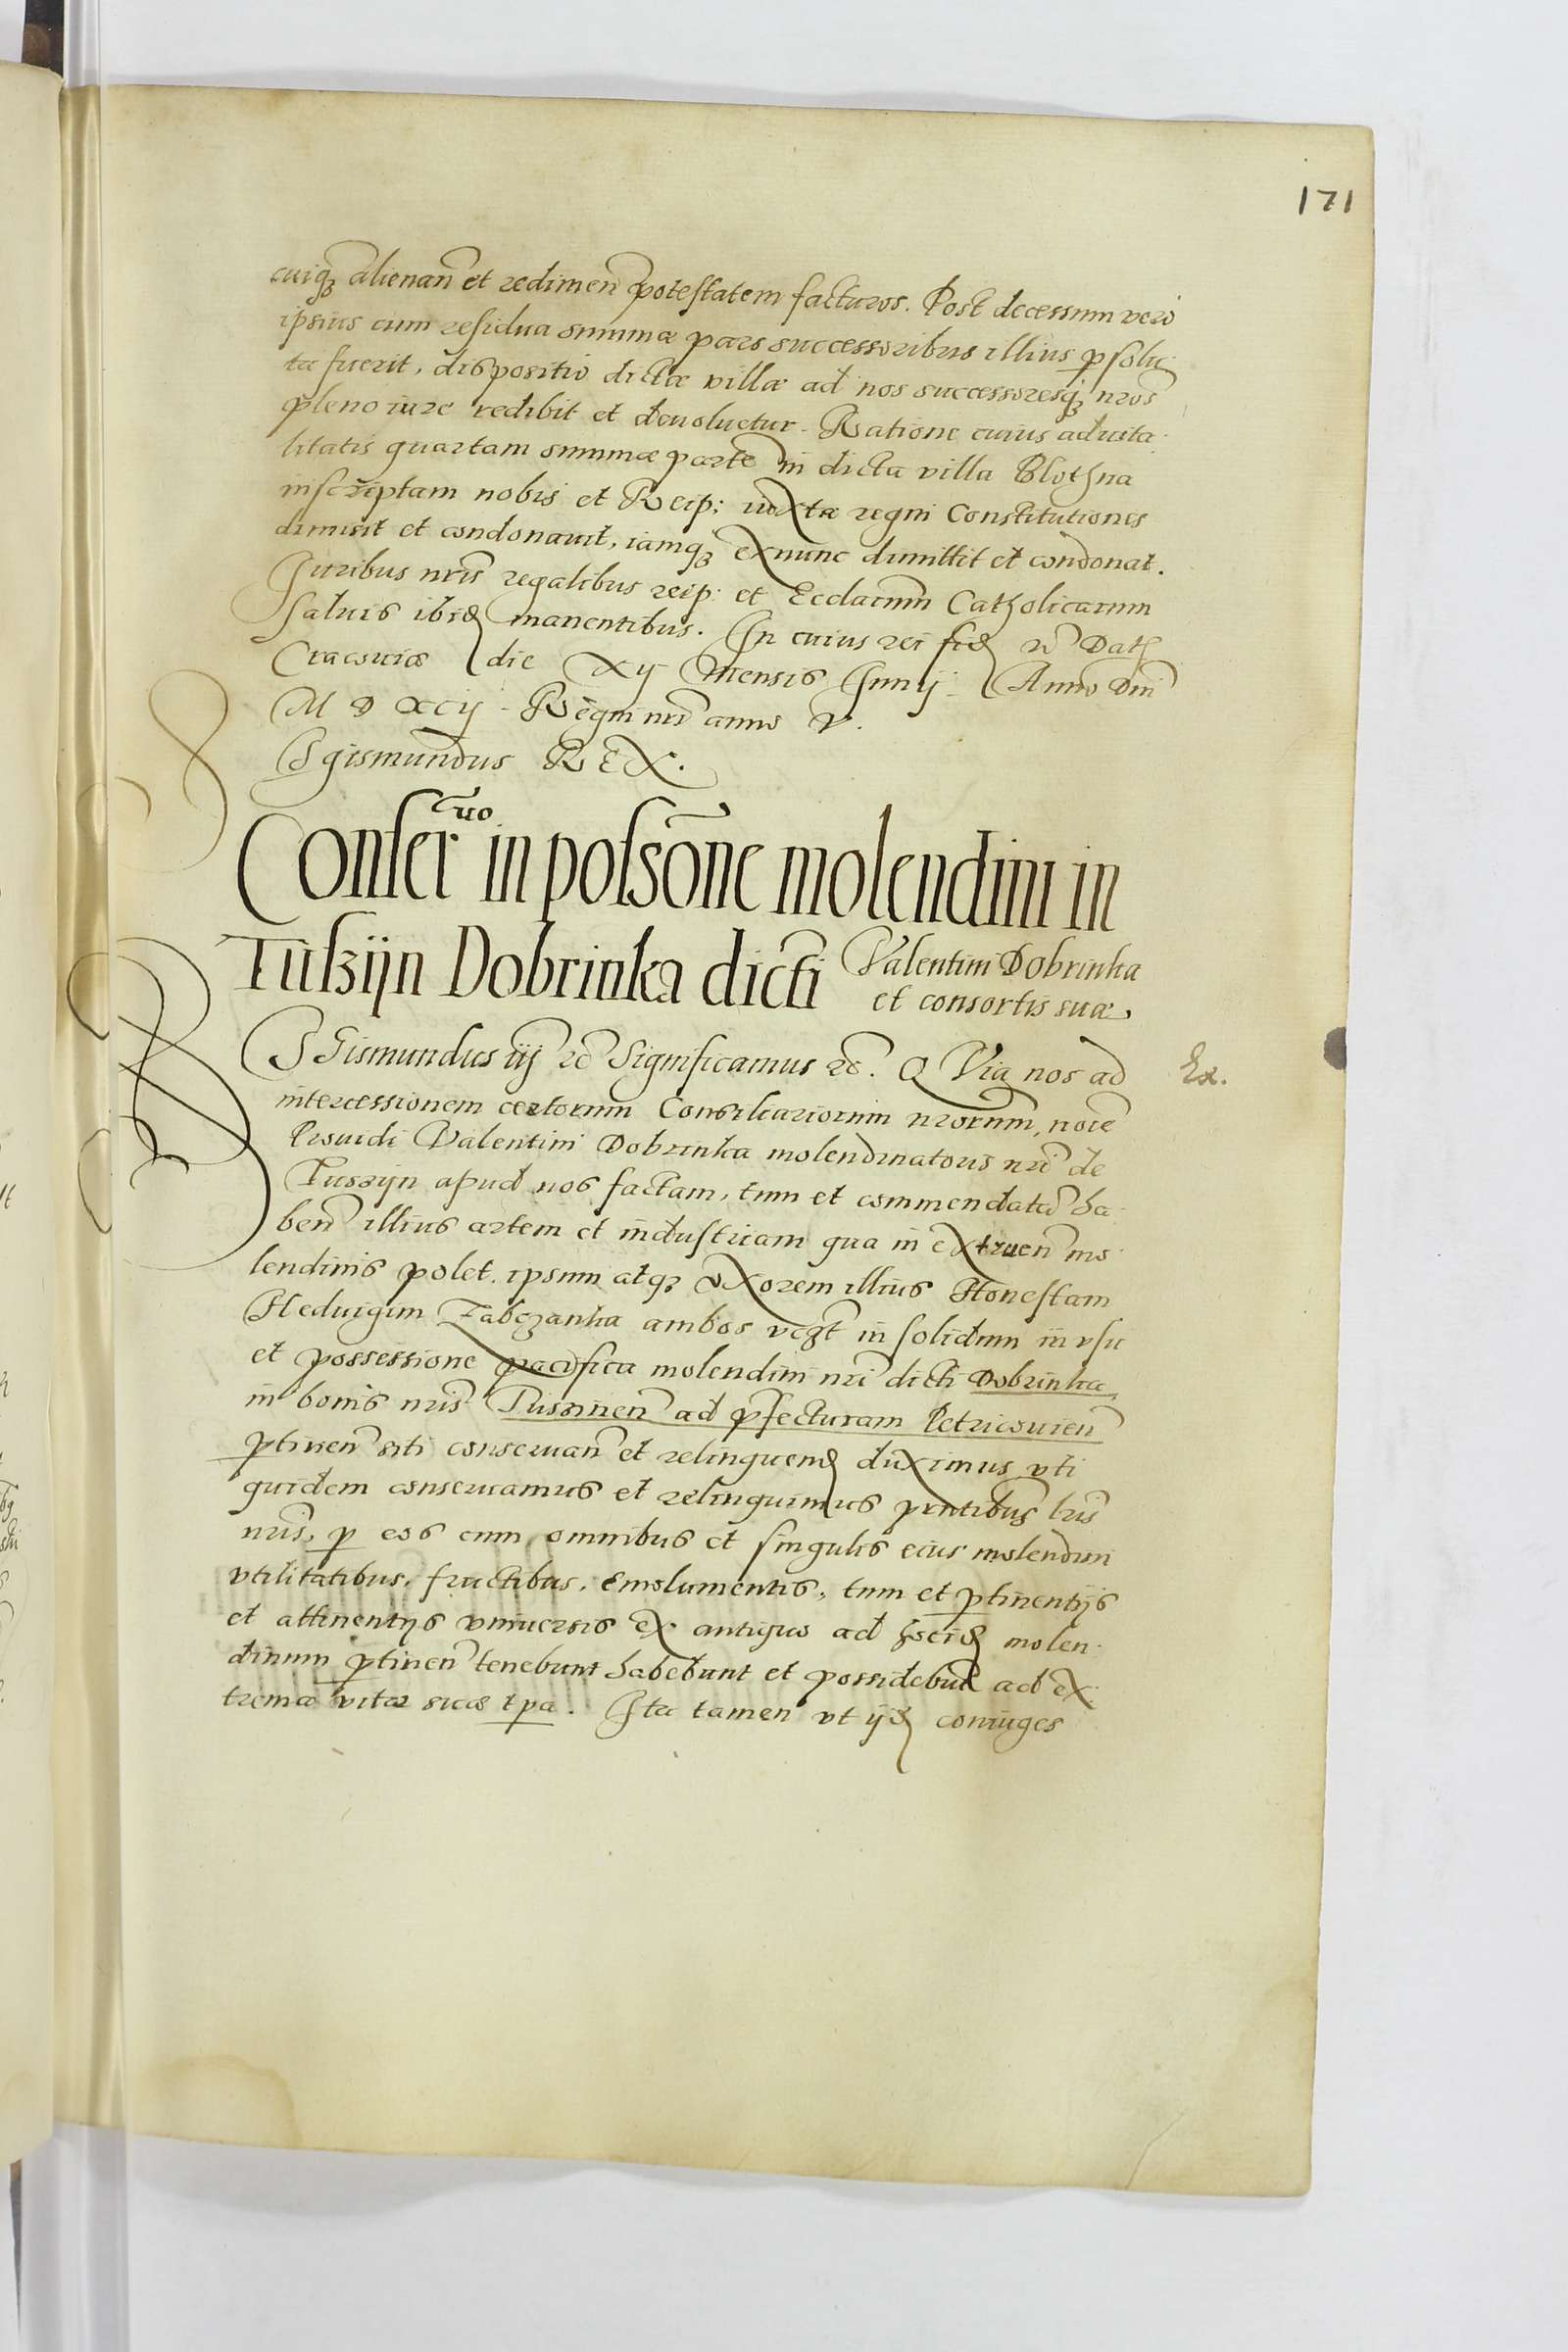 171
cuiqꝫ alienan̄ et redimen̄ potestatem facturos. Post decessum vero
ipsius cum residua summæ pars successoribus illius ꝑsolu-
ta fuerit, dispositio dictæ villæ ad nos successoresqꝫ nros̄
pleno iure redibit et deuoluetur. Ratione cuius aduita-
litatis quartam summæ partē in dicta villa Blothna
inscriptam nobis et Reip: iuxta regni Constitutiones
dimisit et condonauit, iamqꝫ exnunc dimittit et condonat.
Iuribus nris̄ regalibus reip: et Ecclarum̄ Catholicarum
saluis ibid manentibus. In cuius rei fid rc̄ Dat
Cracouiæ die xij mensis Junij. Anno Dnī
M D XCij. Regni nrī anno V.
Sgismundus REX.
Conseruo in possōne molendini in
Tuszijn Dobrinka dicti Valentini Dobrinka
et consortis suæ
SGismundus iij rc̄ Significamus rc̄. QVia nos ad
Ex.
intercessionem certorum Consiliariorum nrorum̄, noīe
Prouidi Valentini Dobrinka molendinatoris nrī de
Tuszijn apud nos factam, tum et commendatā ha-
ben̄ illius artem et industriam qua in extruen̄ mo-
lendinis polet. ipsum atqꝫ vxorem illius Honestam
Heduigim Zabczanka ambos vegt̄ in solidum in vsu
et possessione pacifica molendini nrī dicti Dobrinka
in bonis nris̄ Tussinen̄ ad p̄fecturam Petricouien̄
ꝑtinen̄ siti conseruan̄ et relinquend duximus vti
quidem conseruamus et relinquimus pn̄tibus lris̄
nris̄, ꝑ eos cum omnibus et singulis eius molendini
vtilitatibus, fructibus, emolumentis, tum et ꝑtinentijs
et attinentijs vniuersis ex antiquo ad hocid molen-
dinum ꝑtinen̄ tenebunt habebunt et possidebunt ad ex-
trema vitæ suæ tpa. Ita tamen vt ijd coniuges